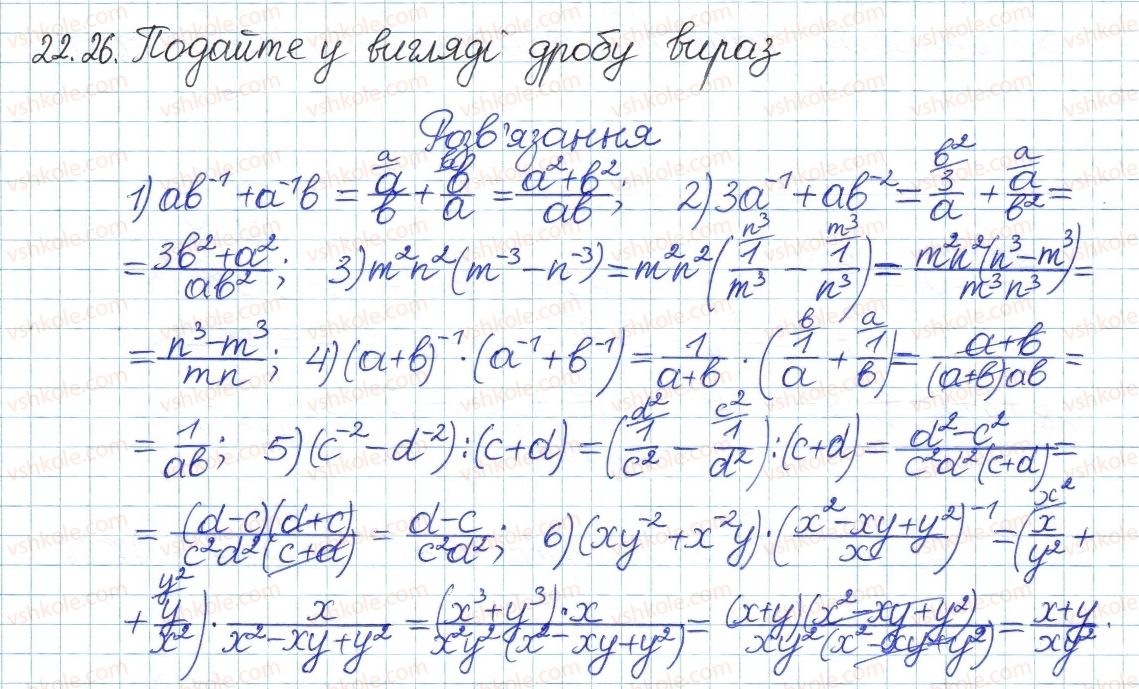 22.26. Подайте у вигляді дробу вираз
Розв'язання
1) ab⁻¹ + a⁻¹b = a/b + b/a = (a² + b²)/(ab); 2) 3a⁻¹ + ab⁻² = 3/a + a/b² =
= (3b² + a²)/(ab²); 3) m²n²(m⁻³ − n⁻³) = m²n²(1/m³ − 1/n³) = m²n²(n³ − m³)/(m³n³) =
= (n³ − m³)/(mn); 4) (a+b)⁻¹ · (a⁻¹ + b⁻¹) = 1/(a+b) · (1/a + 1/b) = (a+b)/((a+b)ab) =
= 1/(ab); 5) (c⁻² − d⁻²) : (c+d) = (1/c² − 1/d²) : (c+d) = (d² − c²)/(c²d²(c+d)) =
= (d−c)(d+c)/(c²d²(c+d)) = (d−c)/(c²d²); 6) (xy⁻² + x⁻²y) · ((x² − xy + y²)/x)⁻¹ = (x/y² +
+ y/x²) · x/(x² − xy + y²) = (x³ + y³) · x/(x²y²(x² − xy + y²)) = (x+y)(x² − xy + y²)/(xy²(x² − xy + y²)) = (x+y)/(xy²).